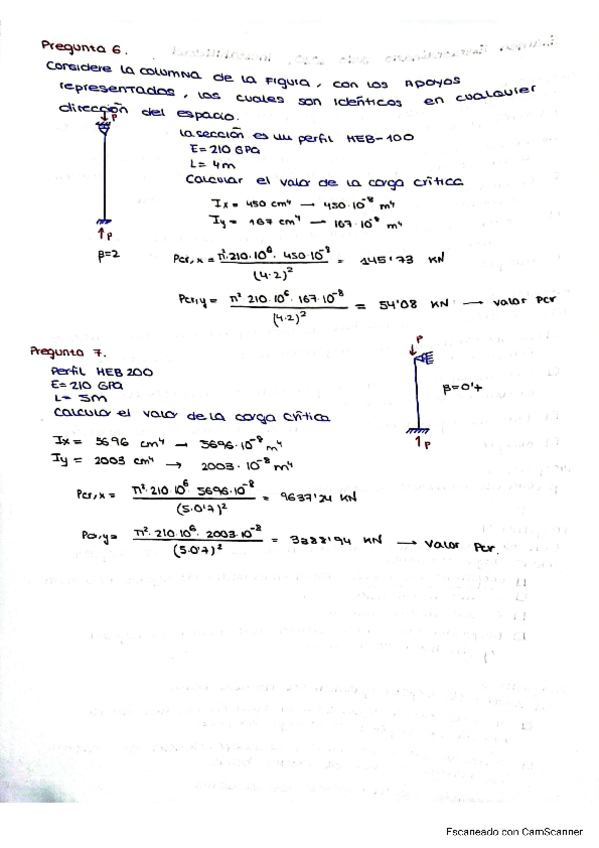 Pregunta 6.
Considere la columna de la figura, con los apoyos
representados, los cuales son idénticos en cualquier
dirección del espacio.
P
la sección es un perfil HEB-100
E= 210 GPa
L= 4m
Calcular el valor de la carga crítica
Ix = 450 cm⁴ → 450·10⁻⁸ m⁴
Iy = 167 cm⁴ → 167·10⁻⁸ m⁴
P
β=2
Pcr,x = π²·210·10⁶·450·10⁻⁸ / (4·2)² = 145'73 KN
Pcr,y = π² 210·10⁶·167·10⁻⁸ / (4·2)² = 54'08 KN → valor Pcr
Pregunta 7.
Perfil HEB 200
E= 210 GPa
L= 5m
Calcular el valor de la carga crítica
P
β=0'7
P
Ix = 5696 cm⁴ → 5696·10⁻⁸ m⁴
Iy = 2003 cm⁴ → 2003·10⁻⁸ m⁴
Pcr,x = π²·210 10⁶ 5696·10⁻⁸ / (5·0'7)² = 9637'24 KN
Pcr,y = π²·210·10⁶·2003·10⁻⁸ / (5·0'7)² = 3388'94 KN → valor Pcr.
Escaneado con CamScanner